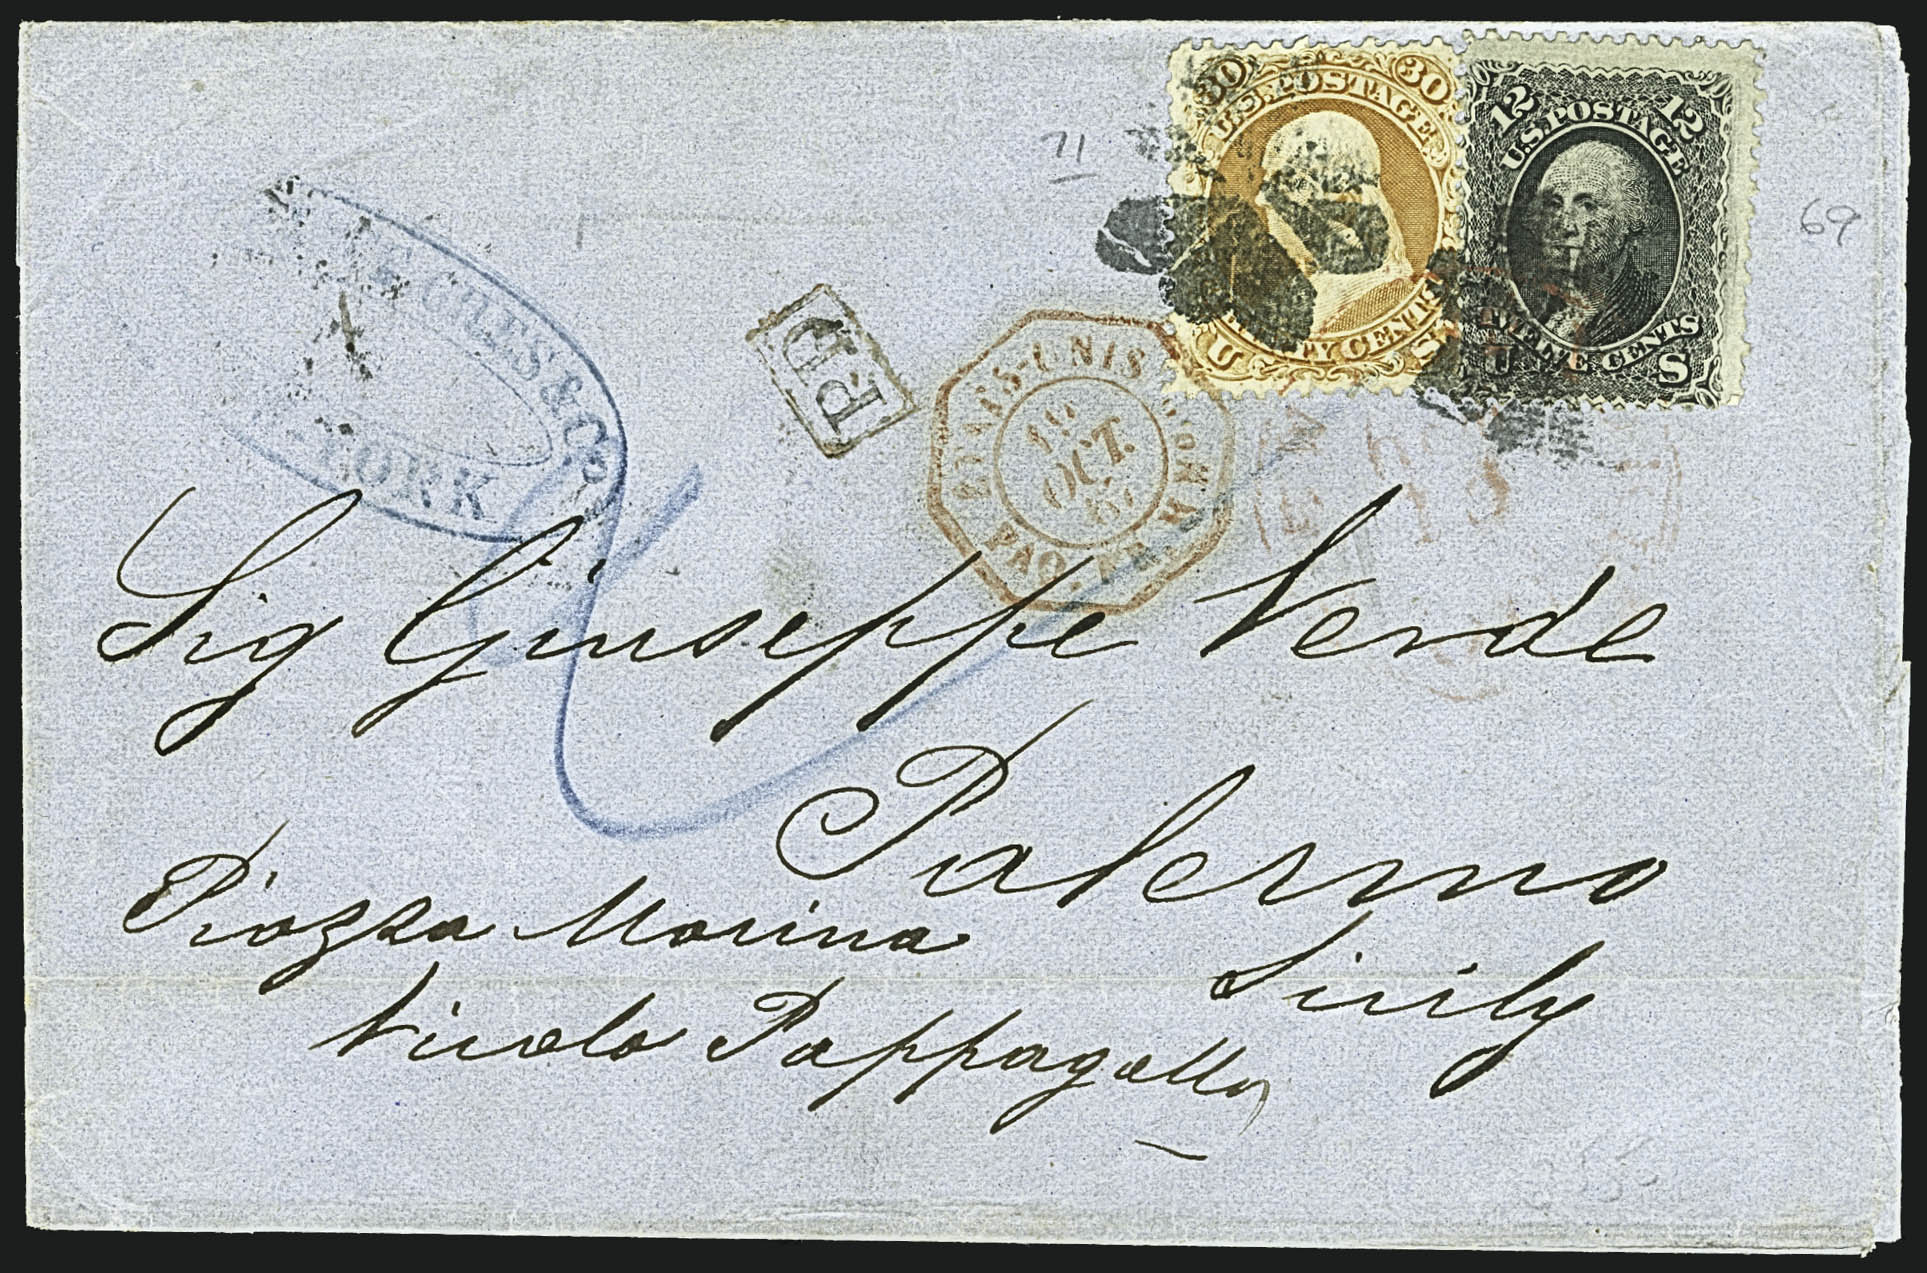 30 30
U.S. POSTAGE
CENTS
U S
12 12
U.S. POSTAGE
TWELVE CENTS
U S
71
69
GILES & CO
YORK
PD
ETATS-UNIS
PAQ. FR.
16
OCT.
67
Sig Giuseppe Verde
Palermo
Sicily
Piazza Marina
Vicolo Pappagallo